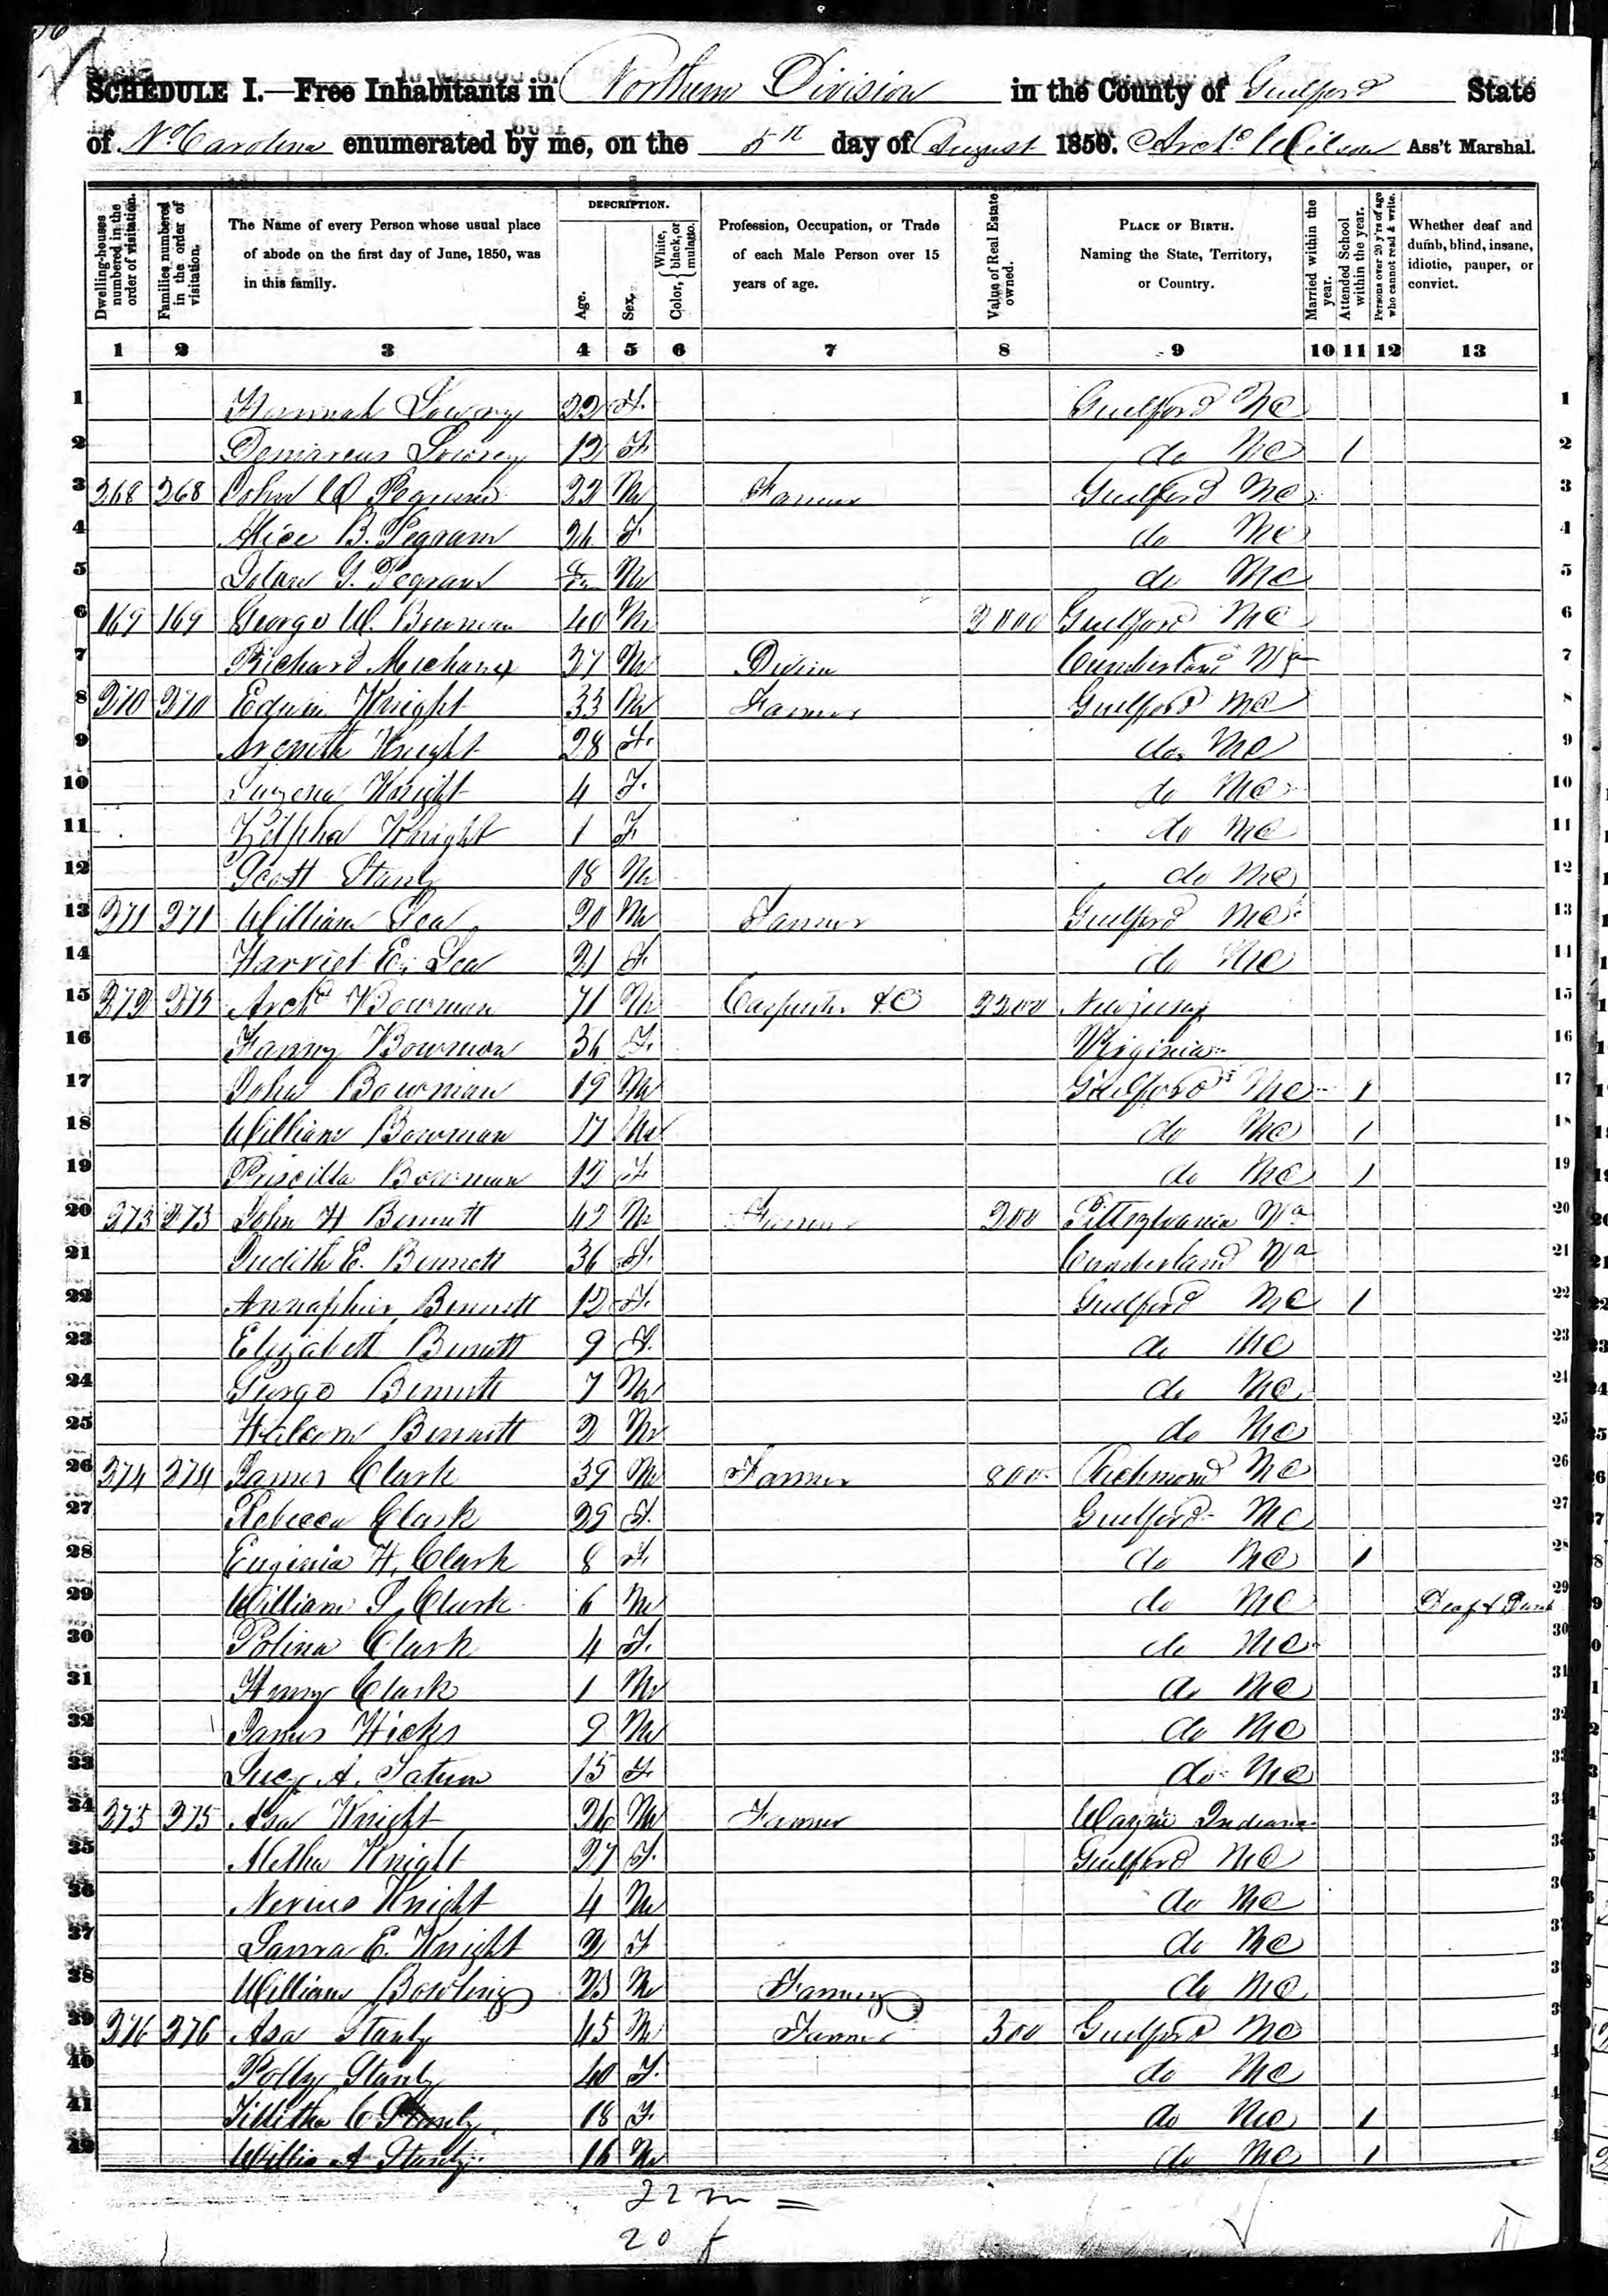 SCHEDULE I.—Free Inhabitants in Northern Division in the County of Guilford State
of No. Carolina enumerated by me, on the 5th day of August 1850. Archd. Wilson Ass't Marshal.
Dwelling-houses numbered in the order of visitation.
Families numbered in the order of visitation.
The Name of every Person whose usual place of abode on the first day of June, 1850, was in this family.
DESCRIPTION.
Age.
Sex.
Color, { White, black, or mulatto.
Profession, Occupation, or Trade of each Male Person over 15 years of age.
Value of Real Estate owned.
PLACE OF BIRTH. Naming the State, Territory, or Country.
Married within the year.
Attended School within the year.
Persons over 20 y'rs of age who cannot read & write.
Whether deaf and dumb, blind, insane, idiotic, pauper, or convict.
1 2 3 4 5 6 7 8 9 10 11 12 13
1 Hannah Lowrey 22 F. Guilford NC 1
2 Lowrey 12 F. do NC 1 2
3 268 268 John Pegram 22 M Farmer Guilford NC 3
4 Alice B. Pegram 26 F do NC 4
5 G. Pegram M do NC 5
6 169 169 George W. Bowman 40 M 2000 Guilford NC 6
7 Richard 37 M Cumberland Va 7
8 270 270 Edwin Knight 33 M Farmer Guilford NC 8
9 Knight 28 F. do NC 9
10 Knight 4 F. do NC 10
11 Zilpha Knight 1 F do NC 11
12 Scott Stanly 18 M do NC 12
13 271 271 William Lea 20 M Farmer Guilford NC 13
14 Harriet E. Lea 21 F. do NC 14
15 272 272 Archd Bowman 71 M Carpenter &C 2200 New jersey 15
16 Fanny Bowman 56 F. Virginia 16
17 John Bowman 19 M Guilford NC 1 17
18 William Bowman 17 M do NC 1 18
19 Priscilla Bowman 12 F do NC 1 19
20 273 273 John H Bennett 42 M Farmer 200 Pittsylvania Va 20
21 Judith E. Bennett 36 F. Cumberland Va 21
22 Bennett 12 F. Guilford NC 1 22
23 Elizabeth Bennett 9 F. do NC 23
24 George Bennett 7 M do NC 24
25 Bennett 2 M do NC 25
26 274 274 James Clark 39 M Farmer 800 Richmond NC 26
27 Rebecca Clark 29 F. Guilford NC 27
28 Euginia H. Clark 8 F. do NC 1 28
29 William S. Clark 6 M do NC Deaf & Dumb 29
30 Polina Clark 4 F. do NC 30
31 Henry Clark 1 M do NC 31
32 James Hicks 9 M do NC 32
33 Lucy A. Tatum 15 F. do NC 33
34 275 275 Asa Knight 26 M Farmer Wayne Indiana
35 Aletha Knight 27 F. Guilford NC
36 Knight 4 M do NC
37 Laura E. Knight 2 F do NC
38 William Bowling 23 M Farming do NC
39 276 276 Asa Stanly 45 M Farmer 300 Guilford NC
40 Polly Stanly 40 F. do NC
41 C Stanly 18 F. do NC 1
42 Willis A Stanly 16 M do NC 1
22 m =
20 f